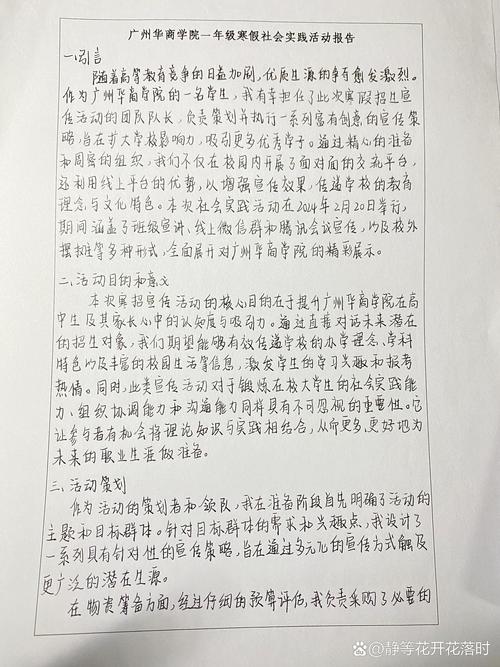 广州华商学院一年级寒假社会实践活动报告
一、引言
随着高等教育竞争的日益加剧，优质生源的争夺愈发激烈。
作为广州华商学院的一名学生，我有幸担任了此次寒假招生宣
传活动的团队队长，负责策划并执行一系列富有创意的宣传策
略，旨在扩大学校影响力，吸引更多优秀学子。通过精心的准备
和周密的组织，我们不仅在校园内开展了面对面的交流平台，
还利用线上平台的优势，以增强宣传效果，传递学校的教育
理念与文化特色。本次社会实践活动在2024年2月20日举行，
期间涵盖了班级宣讲、线上微信群和腾讯会议宣传，以及校外
摆摊等多种形式，全面展开对广州华商学院的精彩展示。
二、活动目的和意义
本次寒招宣传活动的核心目的在于提升广州华商学院在高
中生及其家长心中的认知度与吸引力。通过直接对话未来潜在
的招生对象，我们期望能够有效传递学校的办学理念、学科
特色以及丰富的校园生活等信息，激发学生的学习兴趣和报考
热情。同时，此类宣传活动对于锻炼在校大学生的社会实践能
力、组织协调能力和沟通能力同样具有不可忽视的重要性。它
让参与者有机会将理论知识与实践相结合，从而更多、更好地为
未来的职业生涯做准备。
三、活动策划
作为活动的策划者和领队，我在准备阶段首先明确了活动的
主题和目标群体。针对目标群体的需求和兴趣点，我设计了
一系列具有针对性的宣传策略，旨在通过多元化的宣传方式触及
更广泛的潜在生源。
在物资筹备方面，经过仔细的预算评估，我负责采购了必要的
@静等花开花落时